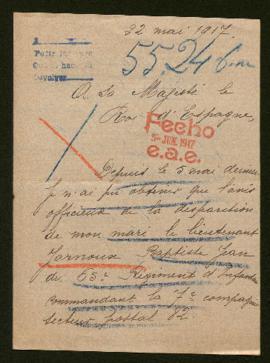 22 mai 1917.
5524
A Sa Majesté le
Roi d'Espagne,
Fecho
JUN. 1917
e.a.e.
Depuis le 5 mai dernier
je n'ai pu obtenir que l'avis
officieux de la disparition
de mon mari le lieutenant
Baptiste Jean
du 63e Régiment d'Infanterie
commandant la 7e compagnie
secteur postal